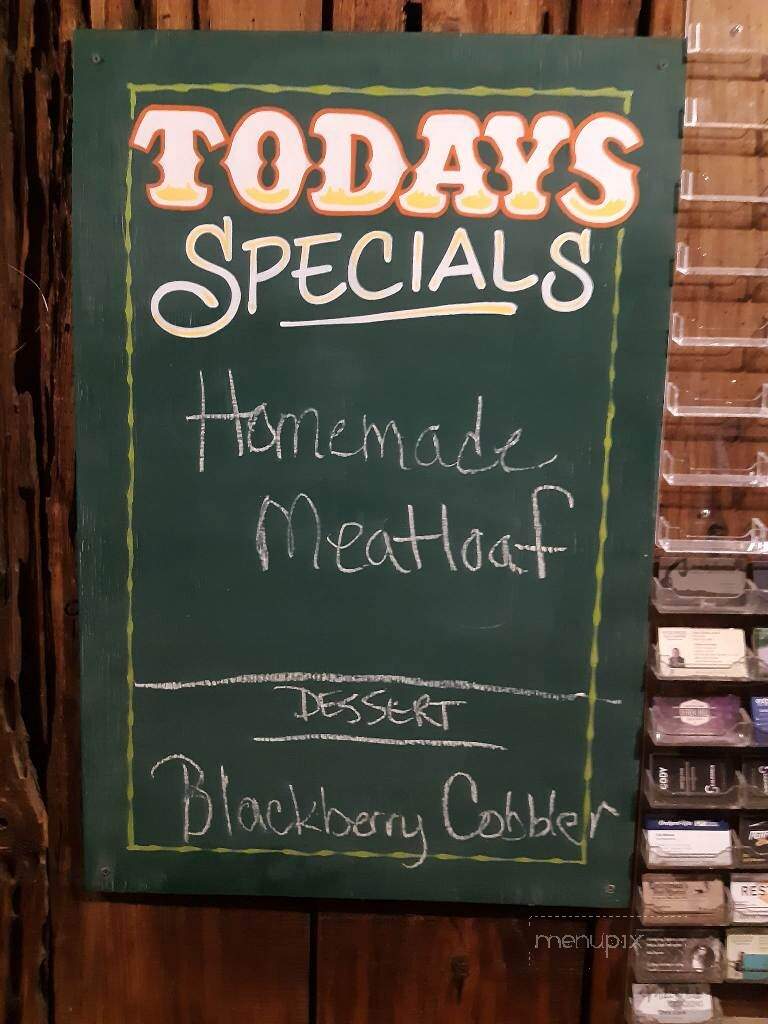 TODAYS
SPECIALS
Homemade
Meatloaf
DESSERT
Blackberry Cobbler
CODY
RES
menupix